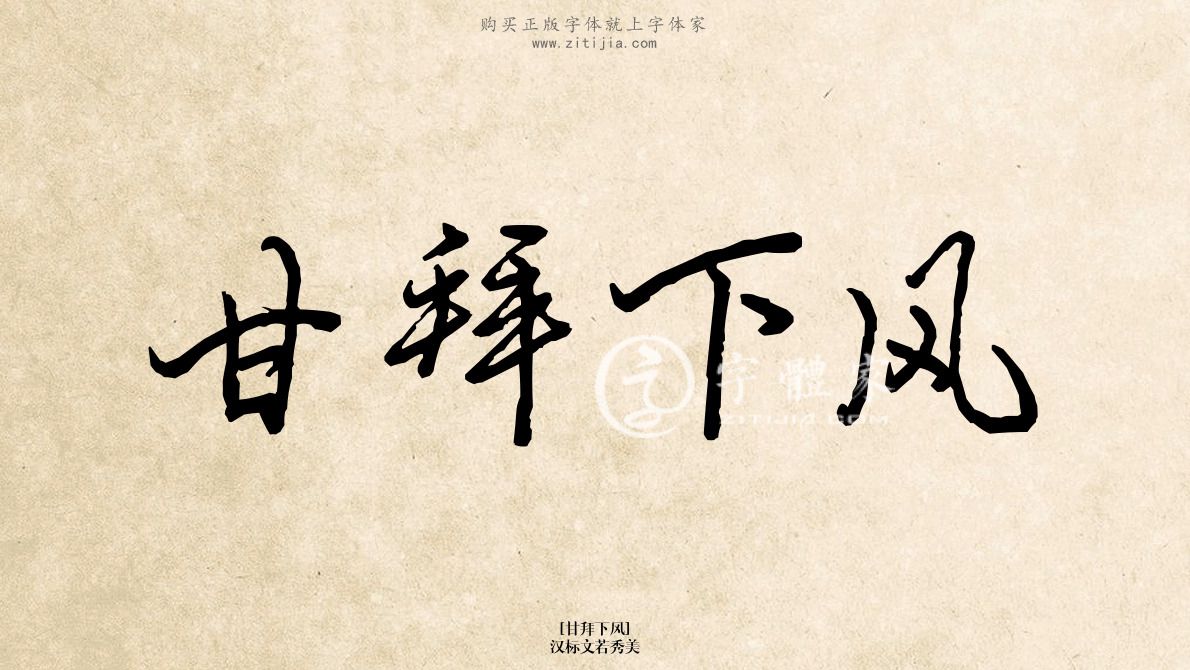 购买正版字体就上字体家
www.zitijia.com
甘拜下风
字體家
ZITIJIA.COM
[甘拜下风]
汉标文若秀美